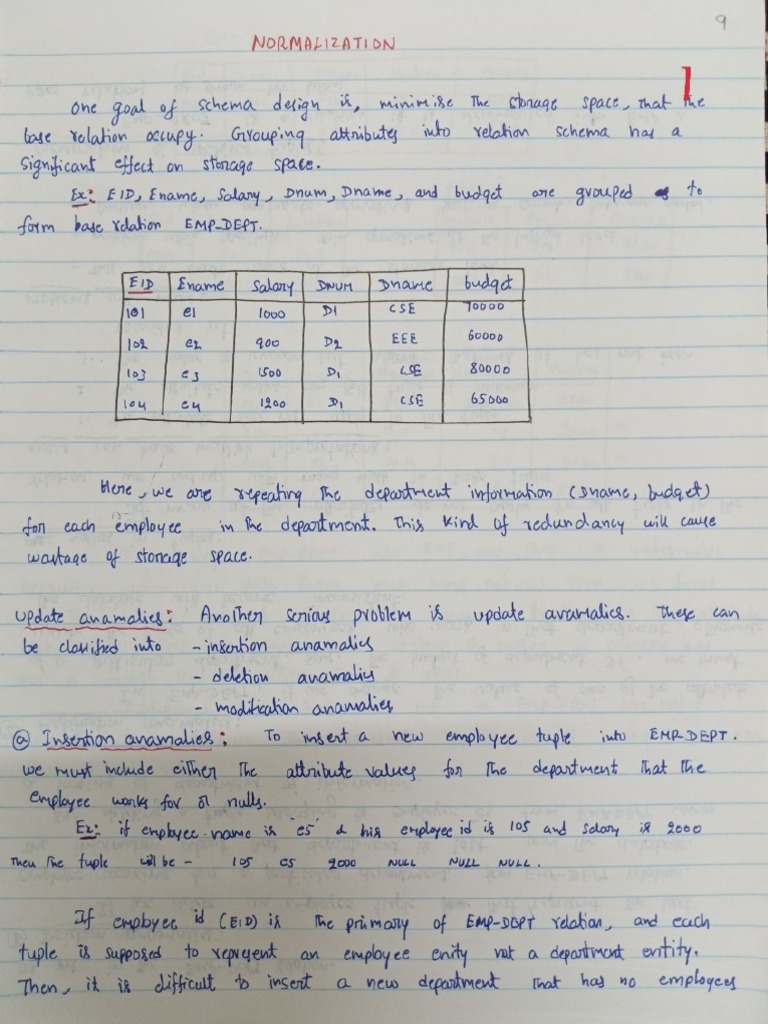 9
NORMALIZATION
1
One goal of schema design is, minimise the storage space, that the
base relation occupy. Grouping attributes into relation schema has a
significant effect on storage space.
Ex: EID, Ename, Salary, Dnum, Dname, and budget are grouped to
form base relation EMP_DEPT.
EID Ename Salary DNUM Dname budget
101 e1 1000 D1 CSE 70000
102 e2 900 D2 EEE 60000
103 e3 1500 D1 CSE 80000
104 e4 1200 D1 CSE 65000
Here, we are repeating the department information (Dname, budget)
for each employee in the department. This kind of redundancy will cause
wastage of storage space.
Update anamalies: Another serious problem is update anamalies. These can
be classified into - insertion anamalies
- deletion anamalies
- modification anamalies
(a) Insertion anamalies: To insert a new employee tuple into EMP_DEPT.
we must include either the attribute values for the department that the
employee works for or nulls.
Ex: if employee name is 'e5' & his employee id is 105 and salary is 2000
Then the tuple will be - 105 e5 2000 NULL NULL NULL.
If employee id (EID) is the primary of EMP-DEPT relation, and each
tuple is supposed to represent an employee enity not a department entity.
Then, it is difficult to insert a new department that has no employees